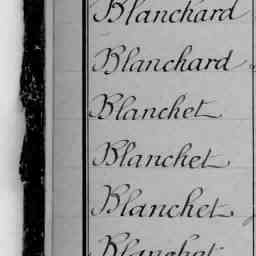 Blanchard
Blanchard
Blanchet
Blanchet
Blanchet
Blanchet